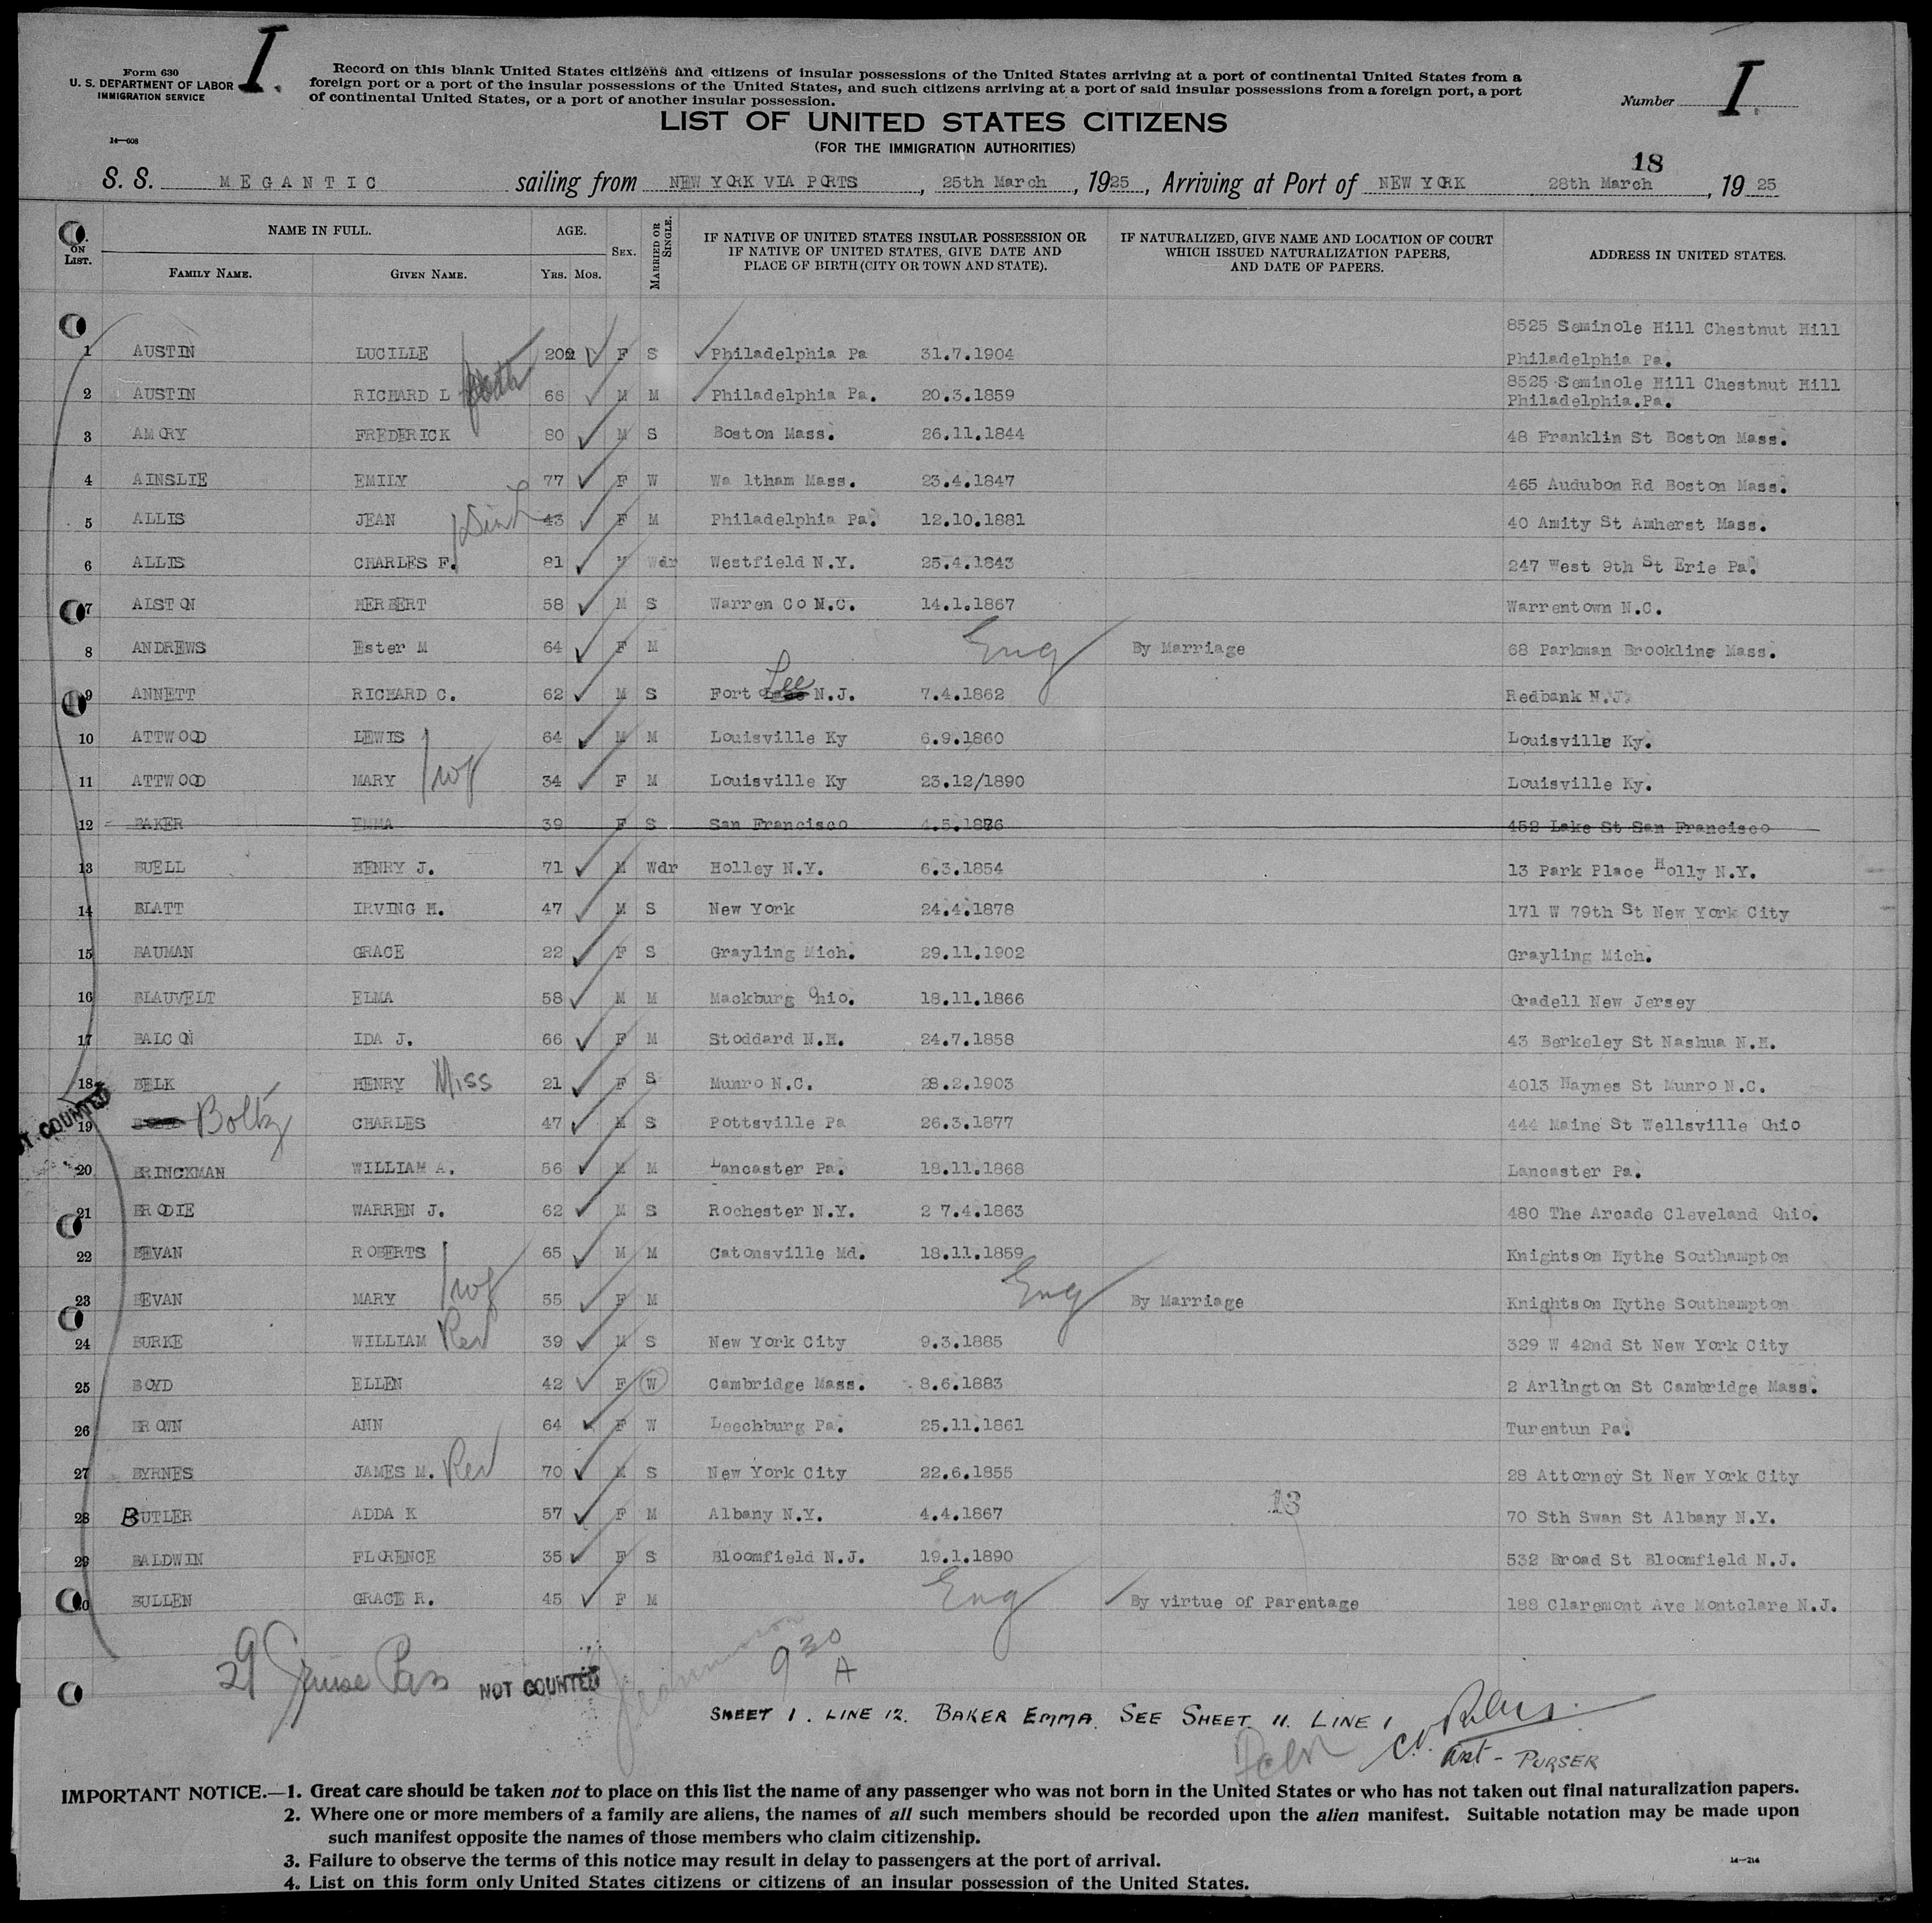 Form 630
U. S. DEPARTMENT OF LABOR
IMMIGRATION SERVICE
14—608
I.
Record on this blank United States citizens and citizens of insular possessions of the United States arriving at a port of continental United States from a
foreign port or a port of the insular possessions of the United States, and such citizens arriving at a port of said insular possessions from a foreign port, a port
of continental United States, or a port of another insular possession.
Number I.
LIST OF UNITED STATES CITIZENS
(FOR THE IMMIGRATION AUTHORITIES)
18
S. S. MEGANTIC sailing from NEW YORK VIA PORTS, 25th March, 1925, Arriving at Port of NEW YORK 28th March, 1925
ON LIST. NAME IN FULL. FAMILY NAME. GIVEN NAME. AGE. YRS. MOS. SEX. MARRIED OR SINGLE. IF NATIVE OF UNITED STATES INSULAR POSSESSION OR IF NATIVE OF UNITED STATES, GIVE DATE AND PLACE OF BIRTH (CITY OR TOWN AND STATE). IF NATURALIZED, GIVE NAME AND LOCATION OF COURT WHICH ISSUED NATURALIZATION PAPERS, AND DATE OF PAPERS. ADDRESS IN UNITED STATES.
8525 Seminole Hill Chestnut Hill
1 AUSTIN LUCILLE 20 F S Philadelphia Pa 31.7.1904 Philadelphia Pa.
8525 Seminole Hill Chestnut Hill
2 AUSTIN RICHARD L 66 M M Philadelphia Pa. 20.3.1859 Philadelphia.Pa.
3 AMORY FREDERICK 80 M S Boston Mass. 26.11.1844 48 Franklin St Boston Mass.
4 AINSLIE EMILY 77 F W Wa ltham Mass. 23.4.1847 465 Audubon Rd Boston Mass.
5 ALLIS JEAN 43 F M Philadelphia Pa. 12.10.1881 40 Amity St Amherst Mass.
6 ALLIS CHARLES F. 81 M Wdr Westfield N.Y. 25.4.1843 247 West 9th St Erie Pa.
7 ALSTON HERBERT 58 M S Warren Co N.C. 14.1.1867 Warrentown N.C.
8 ANDREWS Ester M 64 F M Eng By Marriage 68 Parkman Brookline Mass.
9 ANNETT RICHARD C. 62 M S Fort Lee N.J. 7.4.1862 Redbank N.J.
10 ATTWOOD LEWIS 64 M M Louisville Ky 6.9.1860 Louisville Ky.
11 ATTWOOD MARY wf 34 F M Louisville Ky 23.12/1890 Louisville Ky.
12 BAKER EMMA 39 F S San Francisco 4.5.1886 452 Lake St San Francisco
13 BUELL HENRY J. 71 M Wdr Holley N.Y. 6.3.1854 13 Park Place Holly N.Y.
14 BLATT IRVING H. 47 M S New York 24.4.1878 171 W 79th St New York City
15 BAUMAN GRACE 22 F S Grayling Mich. 29.11.1902 Grayling Mich.
16 BLAUVELT ELMA 58 M M Mackburg Ohio. 18.11.1866 Oradell New Jersey
17 BALCON IDA J. 66 F M Stoddard N.H. 24.7.1858 43 Berkeley St Nashua N.H.
18 BELK HENRY Miss 21 F S Munro N.C. 28.2.1903 4013 Haynes St Munro N.C.
NOT COUNTED
19 Boltz CHARLES 47 M S Pottsville Pa 26.3.1877 444 Maine St Wellsville Ohio
20 BRINCKMAN WILLIAM A. 56 M M Lancaster Pa. 18.11.1868 Lancaster Pa.
21 BRODIE WARREN J. 62 M S Rochester N.Y. 2 7.4.1863 480 The Arcade Cleveland Ohio.
22 BEVAN ROBERTS 65 M M Catonsville Md. 18.11.1859 Knightson Hythe Southampton
23 BEVAN MARY wf 55 F M Eng By Marriage Knightson Hythe Southampton
24 BURKE WILLIAM Rev 39 M S New York City 9.3.1885 329 W 42nd St New York City
25 BOYD ELLEN 42 F W Cambridge Mass. 8.6.1883 2 Arlington St Cambridge Mass.
26 BROWN ANN 64 F W Leechburg Pa. 25.11.1861 Turentun Pa.
27 BYRNES JAMES M. Rev 70 M S New York City 22.6.1855 28 Attorney St New York City
13
28 BUTLER ADDA K 57 F M Albany N.Y. 4.4.1867 70 Sth Swan St Albany N.Y.
29 BALDWIN FLORENCE 35 F S Bloomfield N.J. 19.1.1890 532 Broad St Bloomfield N.J.
30 BULLEN GRACE R. 45 F M Eng By virtue of Parentage 188 Claremont Ave Montclare N.J.
29 Cruise Pas NOT COUNTED 9 30 A
SHEET 1. LINE 12. BAKER EMMA. SEE SHEET 11. LINE 1
Asst - PURSER
IMPORTANT NOTICE.—1. Great care should be taken not to place on this list the name of any passenger who was not born in the United States or who has not taken out final naturalization papers.
2. Where one or more members of a family are aliens, the names of all such members should be recorded upon the alien manifest. Suitable notation may be made upon
such manifest opposite the names of those members who claim citizenship.
3. Failure to observe the terms of this notice may result in delay to passengers at the port of arrival.
4. List on this form only United States citizens or citizens of an insular possession of the United States.
14—214